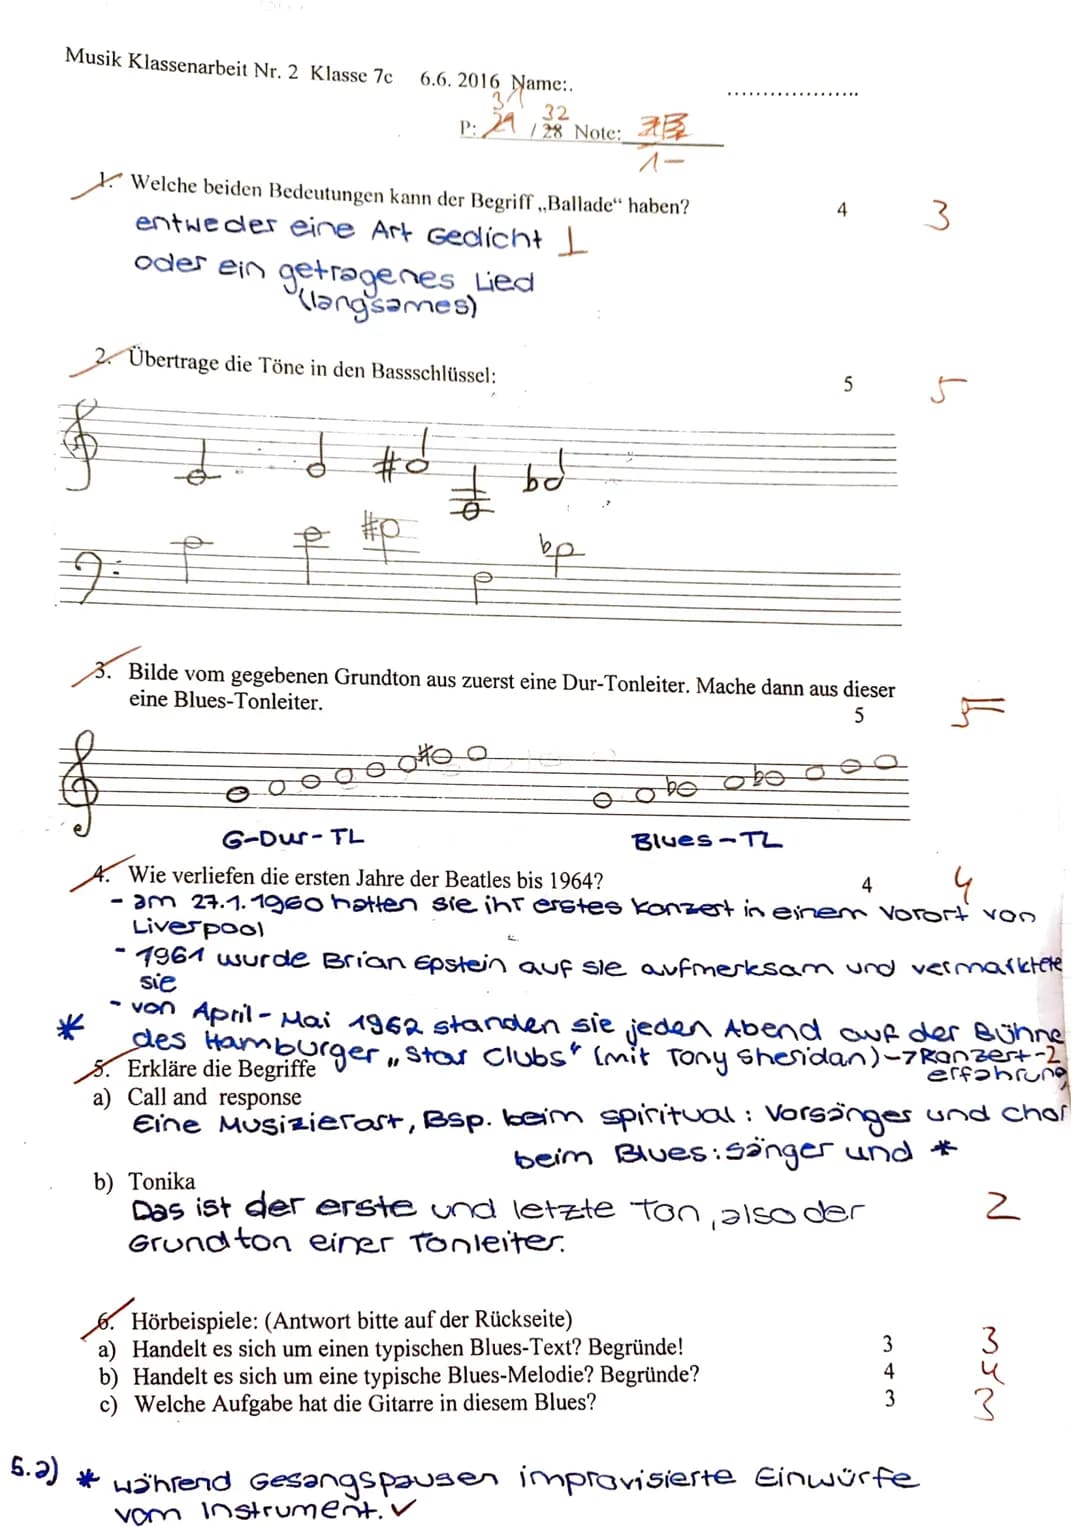 Musik Klassenarbeit Nr. 2 Klasse 7c 6.6. 2016 Name:. ...................
31 32
P: 29 / 28 Note:
1-
1. Welche beiden Bedeutungen kann der Begriff „Ballade“ haben? 4 3
entweder eine Art Gedicht
oder ein getragenes Lied
(langsames)
2. Übertrage die Töne in den Bassschlüssel: 5 5
3. Bilde vom gegebenen Grundton aus zuerst eine Dur-Tonleiter. Mache dann aus dieser
eine Blues-Tonleiter. 5 5
G-Dur-TL Blues-TL
4. Wie verliefen die ersten Jahre der Beatles bis 1964? 4 4
- am 27.1.1960 hatten sie ihr erstes Konzert in einem Vorort von
Liverpool
- 1961 wurde Brian Epstein auf sie aufmerksam und vermarktete
sie
- von April - Mai 1962 standen sie jeden Abend auf der Bühne
* des Hamburger „Star Clubs“ (mit Tony Sheridan) -> Konzert-
5. Erkläre die Begriffe erfahrung 2
a) Call and response
Eine Musizierart, Bsp. beim spiritual: Vorsänger und Chor
beim Blues: Sänger und *
b) Tonika
Das ist der erste und letzte Ton, also der 2
Grundton einer Tonleiter.
6. Hörbeispiele: (Antwort bitte auf der Rückseite)
a) Handelt es sich um einen typischen Blues-Text? Begründe! 3 3
b) Handelt es sich um eine typische Blues-Melodie? Begründe? 4 4
c) Welche Aufgabe hat die Gitarre in diesem Blues? 3 3
5.a) * während Gesangspausen improvisierte Einwürfe
vom Instrument. ✓